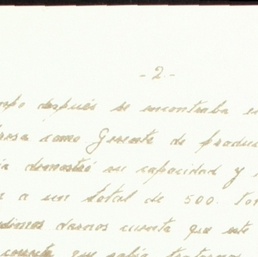 - 2 -
mpo después se encontraba e
resa como Gerente de produc
ia demostró su capacidad y
a a un total de 500. to
dimos darnos cuenta que este